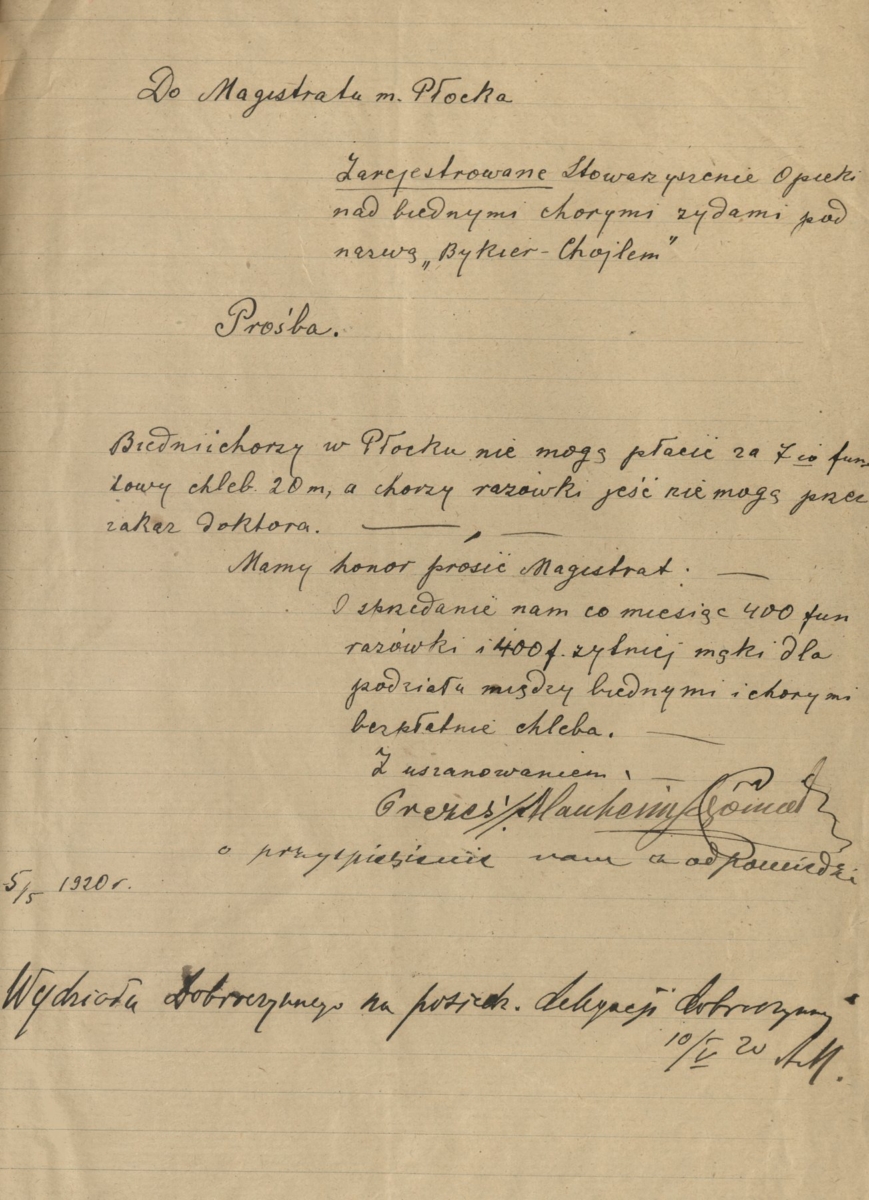 Do Magistratu m. Płocka
Zarejestrowane Stowarzyszenie Opieki
nad biednymi chorymi żydami pod
nazwą „Bykier-Chojlem”
Prośba.
Biedni i chorzy w Płocku nie mogą płacić za 7 io fun
towy chleb 20 m, a chorzy razówki jeść nie mogą przez
zakaz doktora. —
Mamy honor prosić Magistrat. —
O sprzedanie nam co miesiąc 400 fun
razówki i 400 f. żytniej mąki dla
podziału między biednymi i chorymi
bezpłatnie chleba. —
Z uszanowaniem. —
Prezes
o przyspieszenie nam z odpowiedzi
5/5 1920 r.
Wydziału Dobroczynnego na posiedz. delegacji dobroczynn
10/V 20 AM.